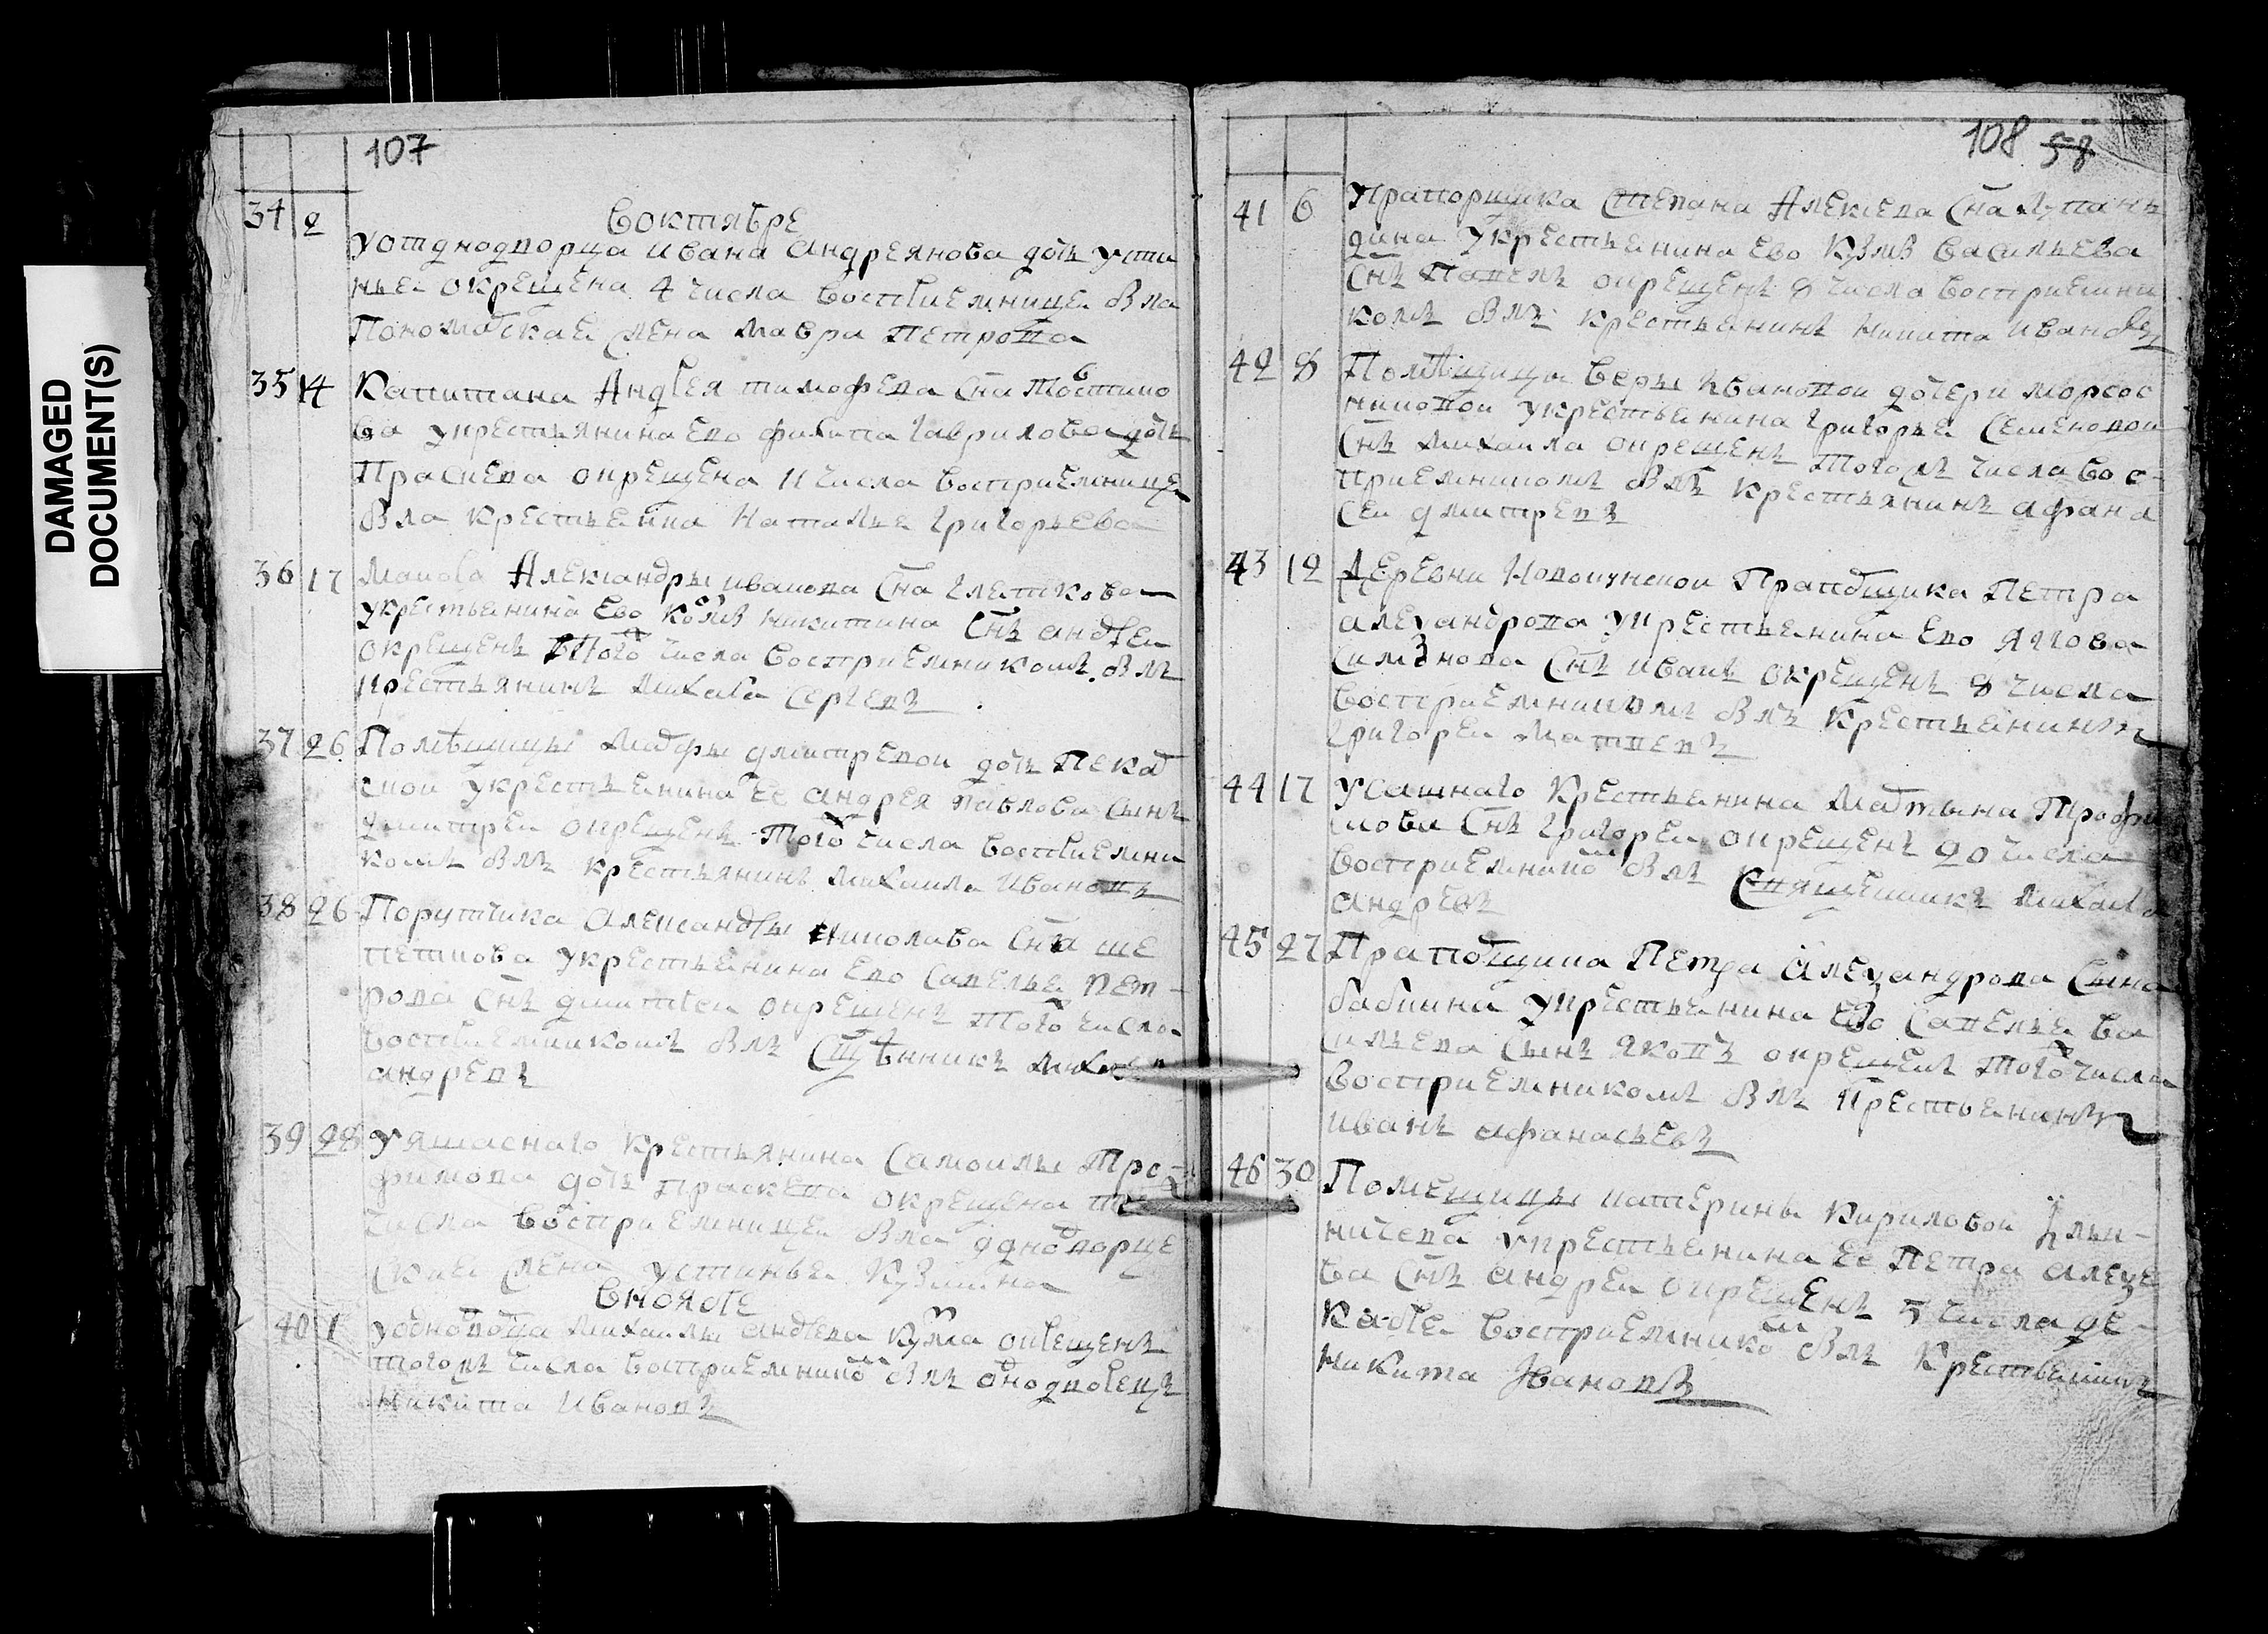 DAMAGED
DOCUMENT(S)
107
Воктябре
34 2 Уотднодворца Ивана Андреянова дочь Усти
ньеи окрещена 4 числа восприемницеи была
Пономарскае жена Мавра Петрова
35 14 Капитана Андрея Тимофева сна
ва укрестьянина ево Филипа Гаврилова дочь
Прасковa окрещена 11 числа восприемницеи
была крестьенка Наталье Григорьева
36 17 Маиора Александры Иванова сна Глеткова
укрестьенина ево Козмы Никитина снъ Андреи
окрещенъ того числа восприемникомъ былъ
крестьянинъ Михаила Сергевъ
37 26 Помѣщицы Марфы Дмитревои дочь
укрестьенина ее Андрея Павлова сынъ
Дмитреи окрещенъ того числа восприемни
комъ былъ крестьянинъ Михаила Ивановъ
38 26 Порутчика Александры Николава сна Ше
петкова укрестьенина ево Савелье Пет-
рова снъ Дмитреи окрещенъ того числа
восприемникомъ былъ Сщѣнникъ Михаила
Андревъ
39 28 Уяшасного крестьянина Самоилы Тро-
фимова дочь Прасковa окрещена
числа восприемницеи была однодворце
скаи жена Устинье Кузмина
Вноябре
40 1 Уоднодворца Михаилы Андрева Кузма окрещенъ
тогожъ числа восприемникомъ былъ однодворецъ
Никита Ивановъ
108 58
41 6 Упрапорщика Степана Алексева сна Лупан
дина укрестьенина ево Кузмы Васильева
снъ Павелъ окрещенъ 8 числа восприемни
комъ былъ крестьенинъ Никита Ивановъ
42 8 Помѣщицы Веры Ивановои дочери
укрестьенина Григорье Семеновои
снъ Михаила окрещенъ тогожъ числа вос-
приемникомъ былъ крестьянинъ Афана
сеи Дмитревъ
43 12 Деревни Прапорщика Петра
Алеѯандрова укрестьенина ево Якова
Симонова снъ Иванъ окрещенъ 8 числа
восприемникомъ былъ крестьенинъ
Григореи Матвевъ
44 17 Усашнаго крестьенина Мартына Трофи
мова снъ Григореи окрещенъ 20 числа
восприемникомъ былъ Священникъ Михаила
Андревъ
45 27 Прапорщика Петра Алеѯандрова сына
Бабкина укрестьенина ево Савелье Ва
сильева сынъ Яковъ окрещенъ того числа
восприемникомъ былъ крестьенинъ
Иванъ Афанасьевъ
46 30 Помещицы Катерины Кириловои Ильи-
ничева укрестьенина ее Петра Алеѯе
ва снъ Андреи окрещенъ 5 числа де-
кабре восприемникомъ былъ крестьенинъ
Никита Ивановъ